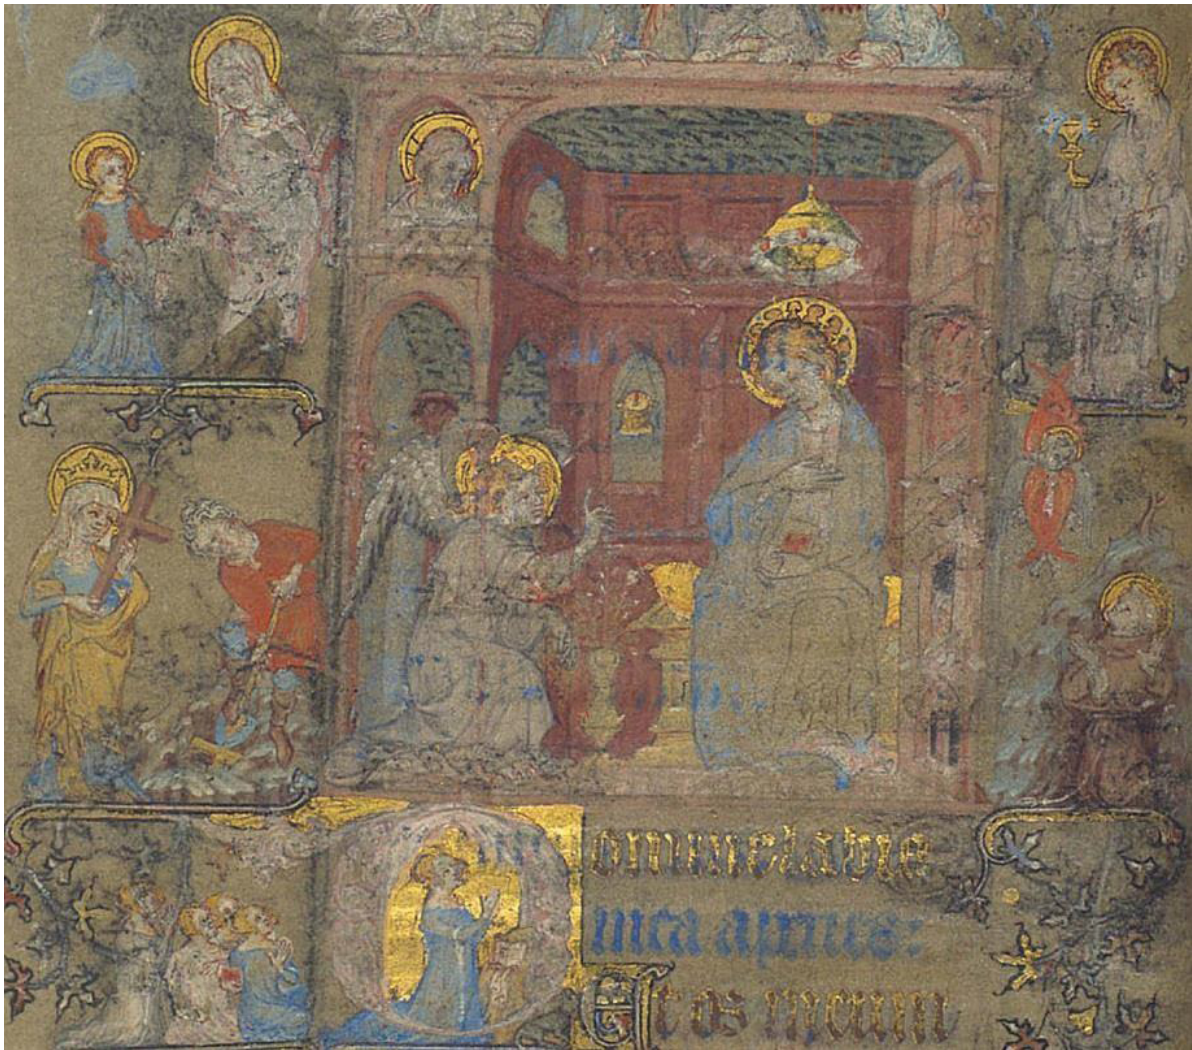 Domine labia
mea aperies:
Et os meum